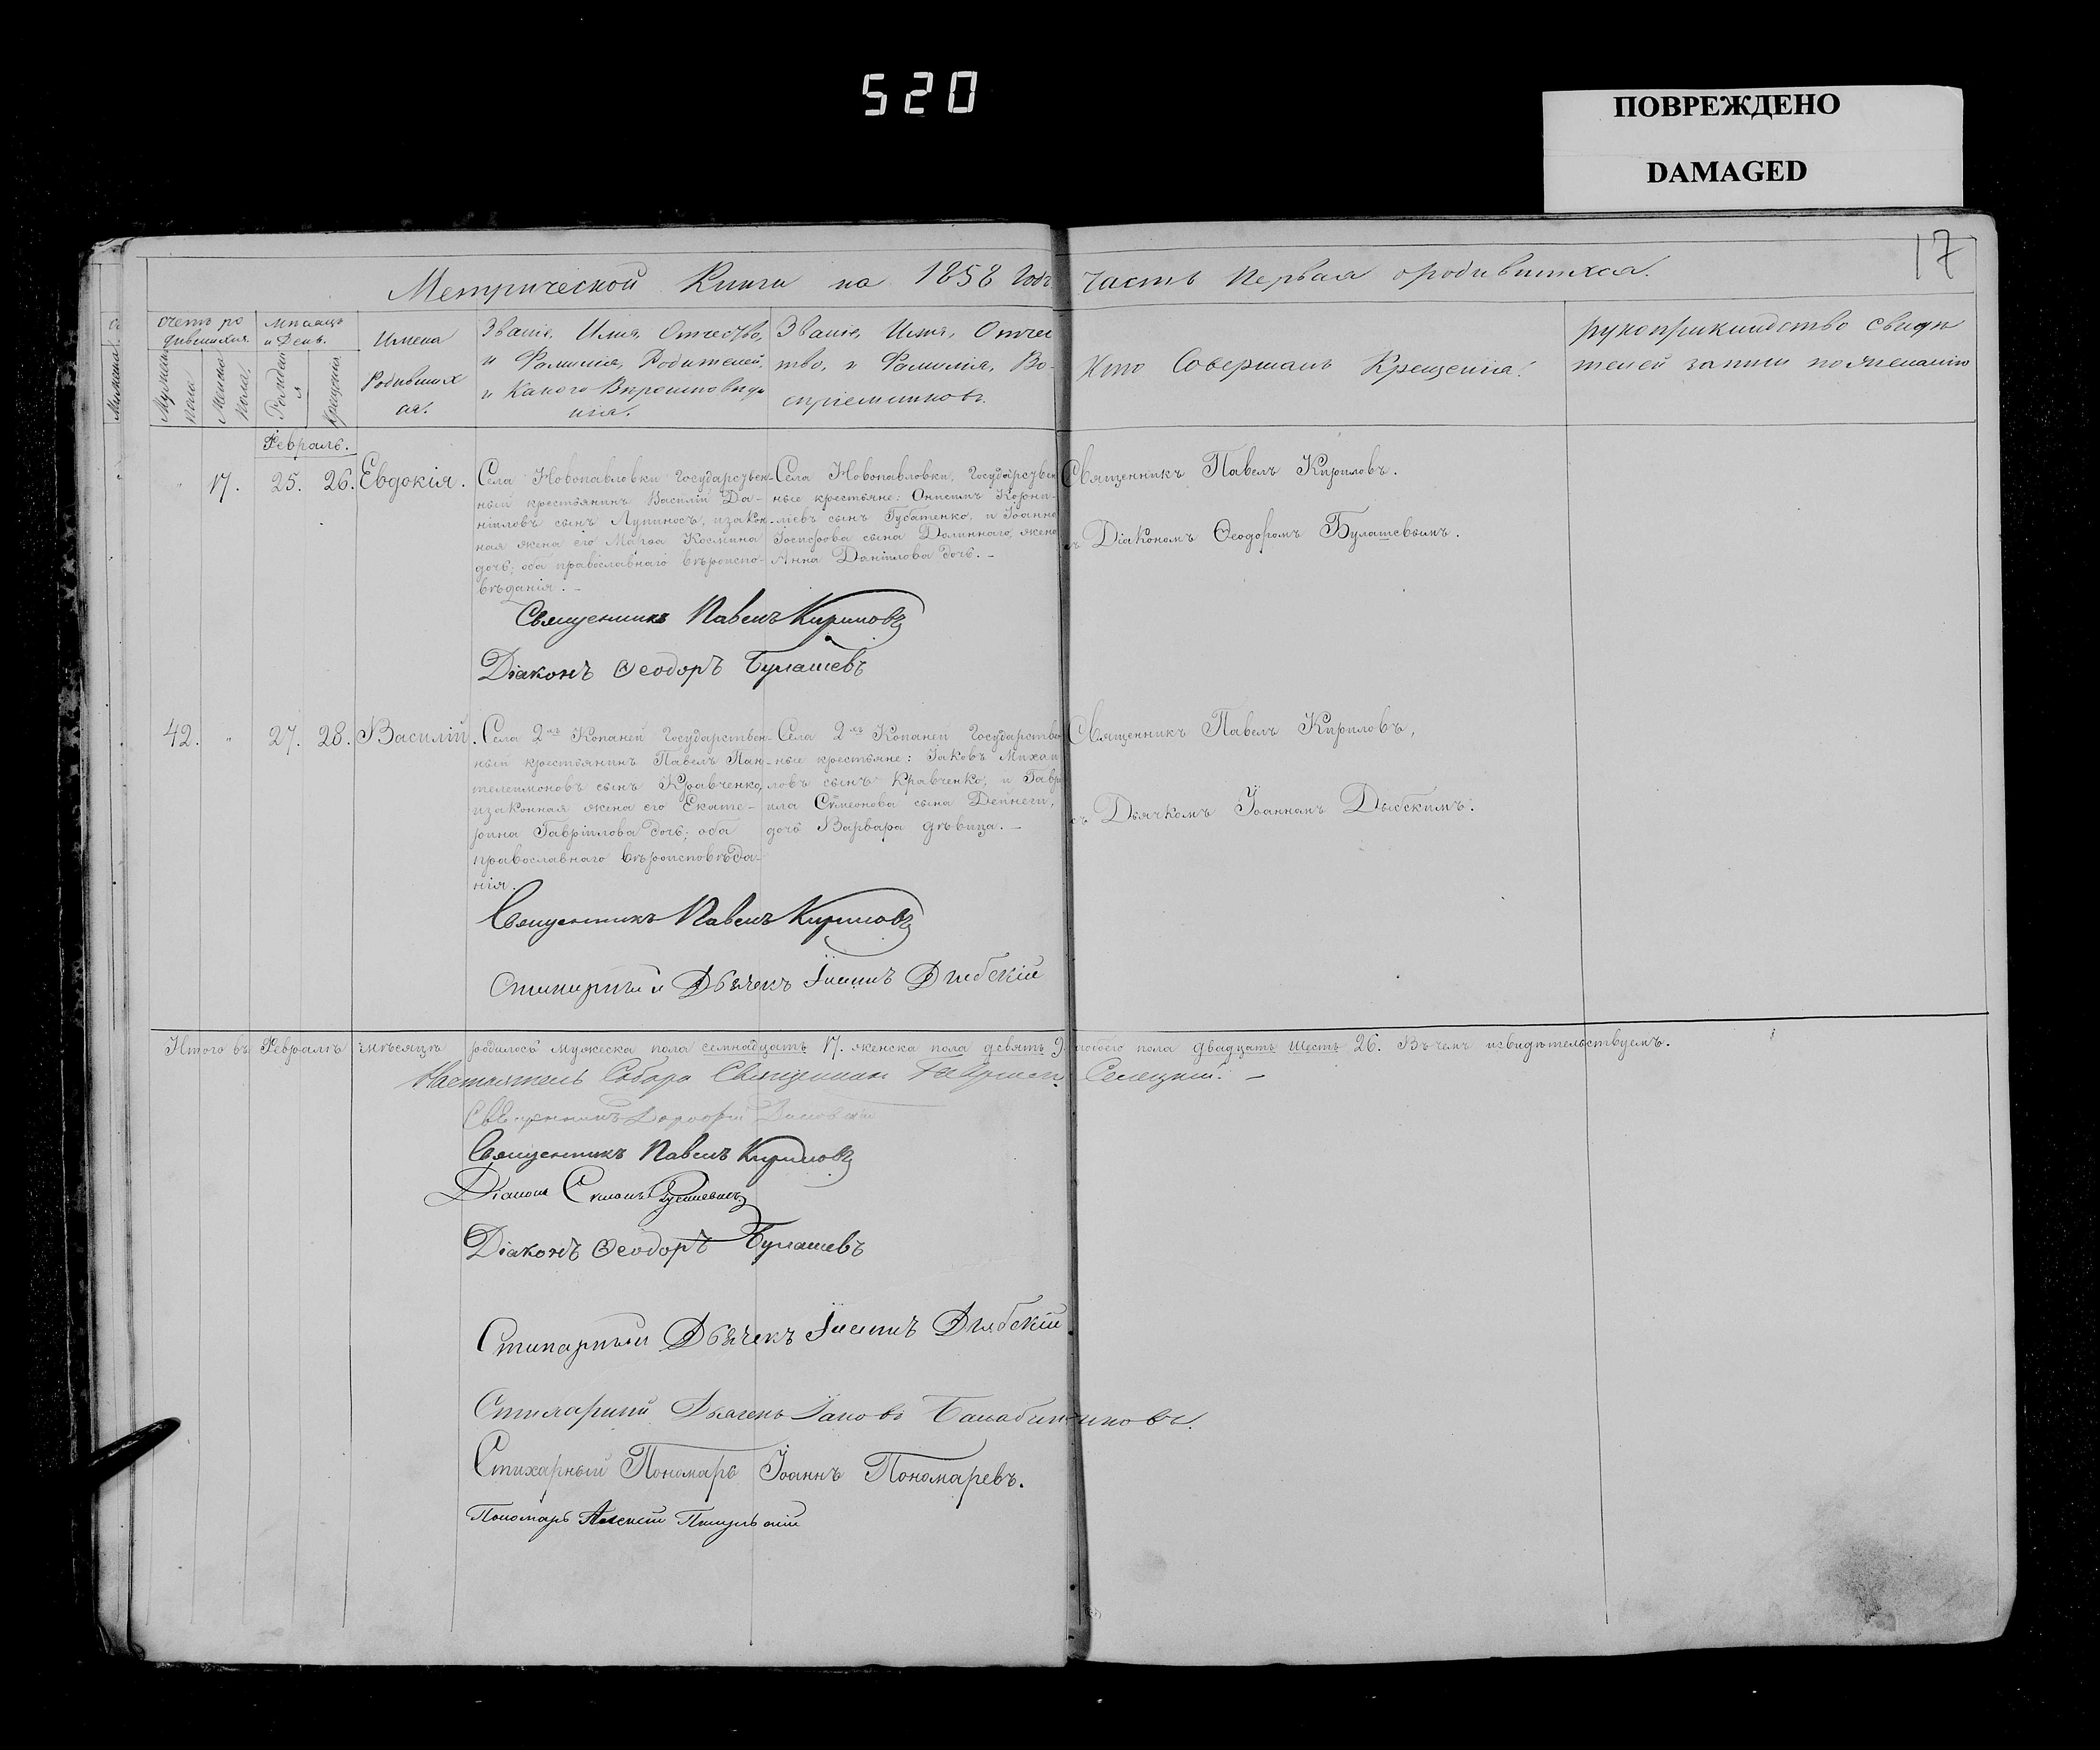 520
ПОВРЕЖДЕНО
DAMAGED
17
Метрической Книги на 1858 Годъ Часть Первая о родившихся.
Счетъ родившихся
Мужска пола
Женска пола
Мѣсяцъ и День.
Рожденія
Крещенія
Имена Родившихся.
Званіе, Имя, Отчество,
и Фамилія, Родителей,
и Какого Вѣроисповѣда
нія.
Званіе, Имя, Отчес
тво, и Фамилія, Во-
спріемниковъ.
Кто Совершалъ Крещеніе.
рукоприкладство свидѣ
телей записи по желанію
Февраль.
17. 25. 26. Евдокія.
Села Новопавловки государствен-
ный крестьянинъ Василій Да-
ніиловъ сынъ Лупиносъ, и закон-
ная жена его Марѳа Космина
дочь, оба православнаго вѣроиспо-
вѣданія. -
Села Новопавловки, государствен
ные крестьяне: Онисимъ Корни-
ліевъ сынъ Губатенко, и Іоанна
Іосифова сына Долиннаго, жена
Анна Даніилова дочь. -
Священникъ Павелъ Кириловъ.
съ Діакономъ Ѳеодоромъ Булашевымъ.
Священникъ Павелъ Кириловъ
Діаконъ Ѳеодоръ Булашевъ
42. " 27. 28. Василій.
Села 2хъ Копаней Государствен-
ный крестьянинъ Павелъ Пан-
телеимоновъ сынъ Кравченко,
и законная жена его Екате-
рина Гавріилова дочь; оба
православнаго вѣроисповѣда-
нія.
Села 2хъ Копаней Государствен
ные крестьяне: Іаковъ Михаи
ловъ сынъ Кравченко, и Гаврі
ила Симеонова сына Дейнеги,
дочь Варвара дѣвица. -
Священникъ Павелъ Кириловъ,
съ Дьячкомъ Іоанномъ Дыбскимъ.
Священникъ Павелъ Кириловъ
Стихарный Дьячекъ Іоаннъ Дыбскій
Итого въ Февралѣ мѣсяцѣ родилось мужеска пола семнадцать 17. женска пола девять 9. обоего пола двадцать шесть 26. Въ чемъ и свидѣтельствуемъ.
Настоятель Собора Священник Гавріил Селецкий. -
Священникъ
Священникъ Павелъ Кириловъ
Діаконъ
Діаконъ Ѳеодоръ Булашевъ
Стихарный Дьячекъ Іоаннъ Дыбскій
Стихарный Дьячекъ Іаковъ
Стихарный Пономарь Іоаннъ Пономаревъ.
Пономарь Алексій